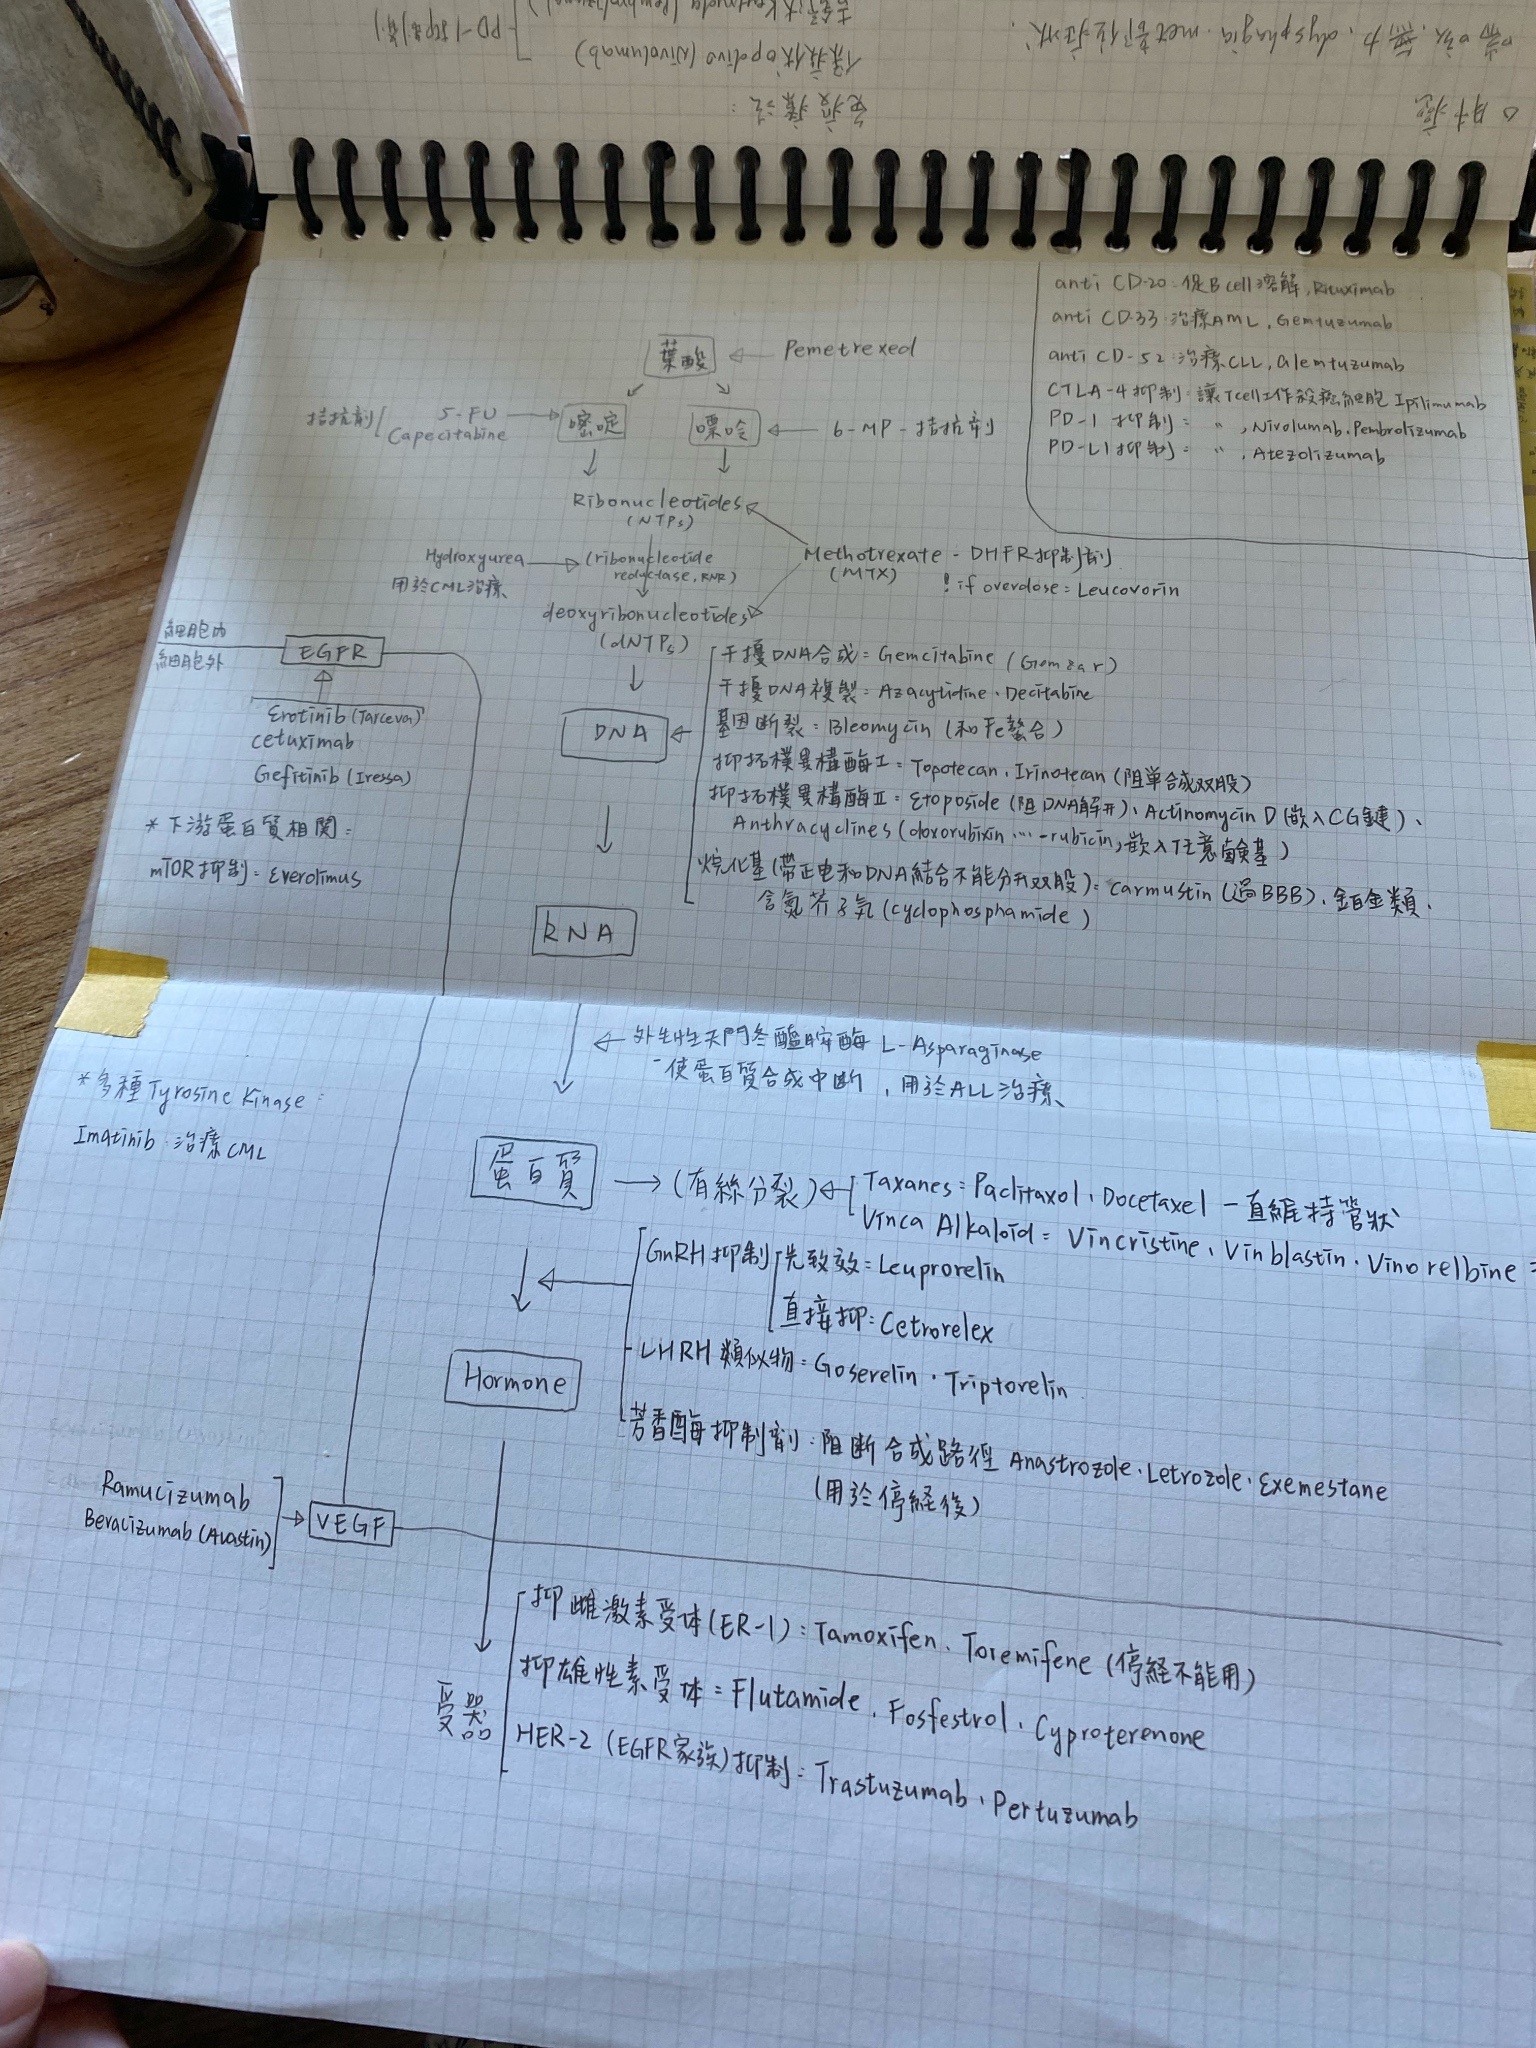 葉酸
Pemetrexed
拮抗劑
5-FU
Capecitabine
嘧啶
嘌呤
6-MP - 拮抗劑
Ribonucleotides
(NTPs)
Hydroxyurea
用於CML治療
(ribonucleotide
reductase, RNR)
Methotrexate - DHFR抑制劑
(MTX)
! if overdose = Leucovorin
deoxyribonucleotides
(dNTPs)
anti CD-20: 促B cell溶解, Rituximab
anti CD-33: 治療AML, Gemtuzumab
anti CD-52: 治療CLL, Alemtuzumab
CTLA-4抑制: 讓Tcell工作殺癌細胞 Ipilimumab
PD-1 抑制 = 〃, Nivolumab. Pembrolizumab
PD-L1抑制 = 〃, Atezolizumab
細胞內
細胞外
EGFR
Erotinib (Tarceva)
cetuximab
Gefitinib (Iressa)
*下游蛋白質相關=
mTOR抑制 = Everolimus
DNA
干擾DNA合成 = Gemcitabine (Gemzar)
干擾DNA複製 = Azacytidine、Decitabine
基因斷裂 = Bleomycin (和Fe螯合)
抑拓樸異構酶I = Topotecan、Irinotecan (阻單合成双股)
抑拓樸異構酶II = Etoposide (阻DNA解开)、Actinomycin D (嵌入CG鍵)、
Anthracyclines (doxorubixin … -rubicin, 嵌入任意鹼基)
烷化基(帶正电和DNA結合不能分开双股) = carmustin (過BBB)、鉑金類、
含氮芥子気 (cyclophosphamide)
RNA
外生性天門冬醯胺酶 L-Asparaginase
-使蛋白質合成中断, 用於ALL治療
*多種Tyrosine Kinase =
Imatinib: 治療CML
蛋白質
(有絲分裂)
Taxanes = Paclitaxol、Docetaxel - 直維持管狀
Vinca Alkaloid = Vincristine、Vinblastin、Vinorelbine
GnRH抑制
先致效 = Leuprorelin
直接抑 = Cetrorelex
LHRH 類似物 = Goserelin、Triptorelin
芳香酶抑制劑: 阻断合成路徑 Anastrozole、Letrozole、Exemestane
(用於停経後)
Hormone
Ramucizumab
Bevacizumab (Avastin)
VEGF
受器
抑雌激素受体(ER-1): Tamoxifen、Toremifene (停経不能用)
抑雄性素受体 = Flutamide、Fosfestrol、Cyproterenone
HER-2 (EGFR家族)抑制 = Trastuzumab、Pertuzumab
肺癌
咳嗽、無力、dysphagia、met部位症狀
免疫療法:
保疾伏Opdivo (Nivolumab)
吉舒達Keytruda (Pembrolizumab)
PD-1抑制劑